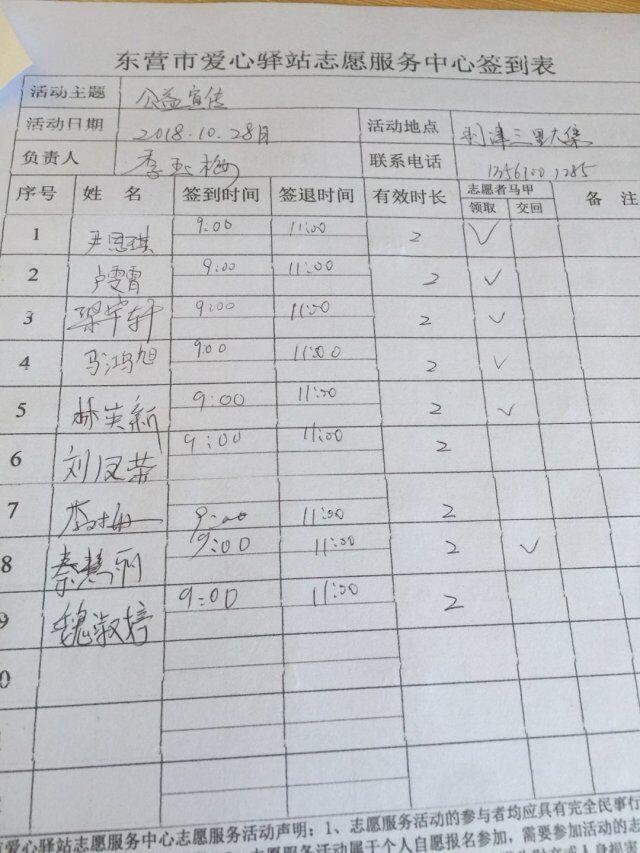 东营市爱心驿站志愿服务中心签到表
活动主题 公益宣传
活动日期 2018.10.28日 活动地点 利津三里大集
负责人 季玉梅 联系电话
序号 姓名 签到时间 签退时间 有效时长 志愿者马甲 备注
领取 交回
1 尹思琪 9:00 11:00 2 √
2 卢雯霄 9:00 11:00 2 √
3 梁宇轩 9:00 11:00 2 √
4 马鸿旭 9:00 11:00 2 √
5 林英新 9:00 11:00 2 √
6 刘凤荣 9:00 11:00 2
7 9:00 11:00 2
8 秦慧丽 9:00 11:00 2 √
9 魏淑婷 9:00 11:00 2
0
爱心驿站志愿服务中心志愿服务活动声明：1、志愿服务活动的参与者均应具有完全民事行
志愿服务活动属于个人自愿报名参加，需要参加活动的志